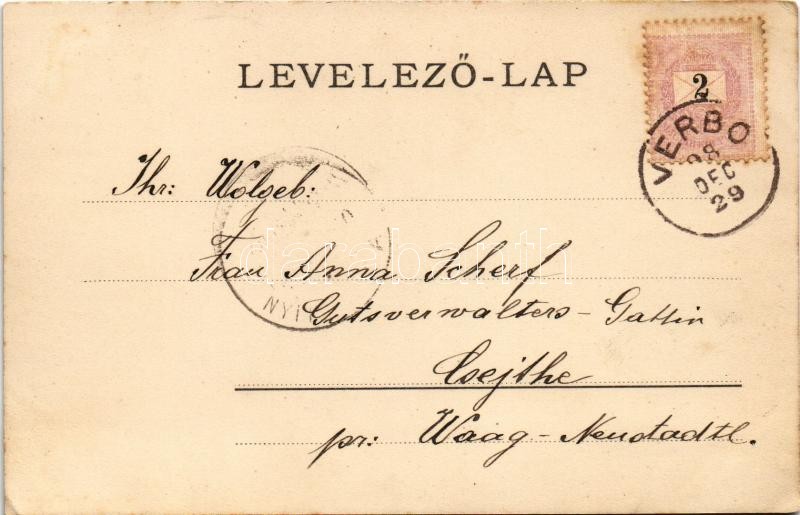 LEVELEZŐ-LAP
2
VERBO
98
DEC
29
Ihr: Wolgeb:
Frau Anna Scherf
Gutsverwalters-Gattin
Csejthe
pr: Waag-Neustadtl.
NYIT
darabanth